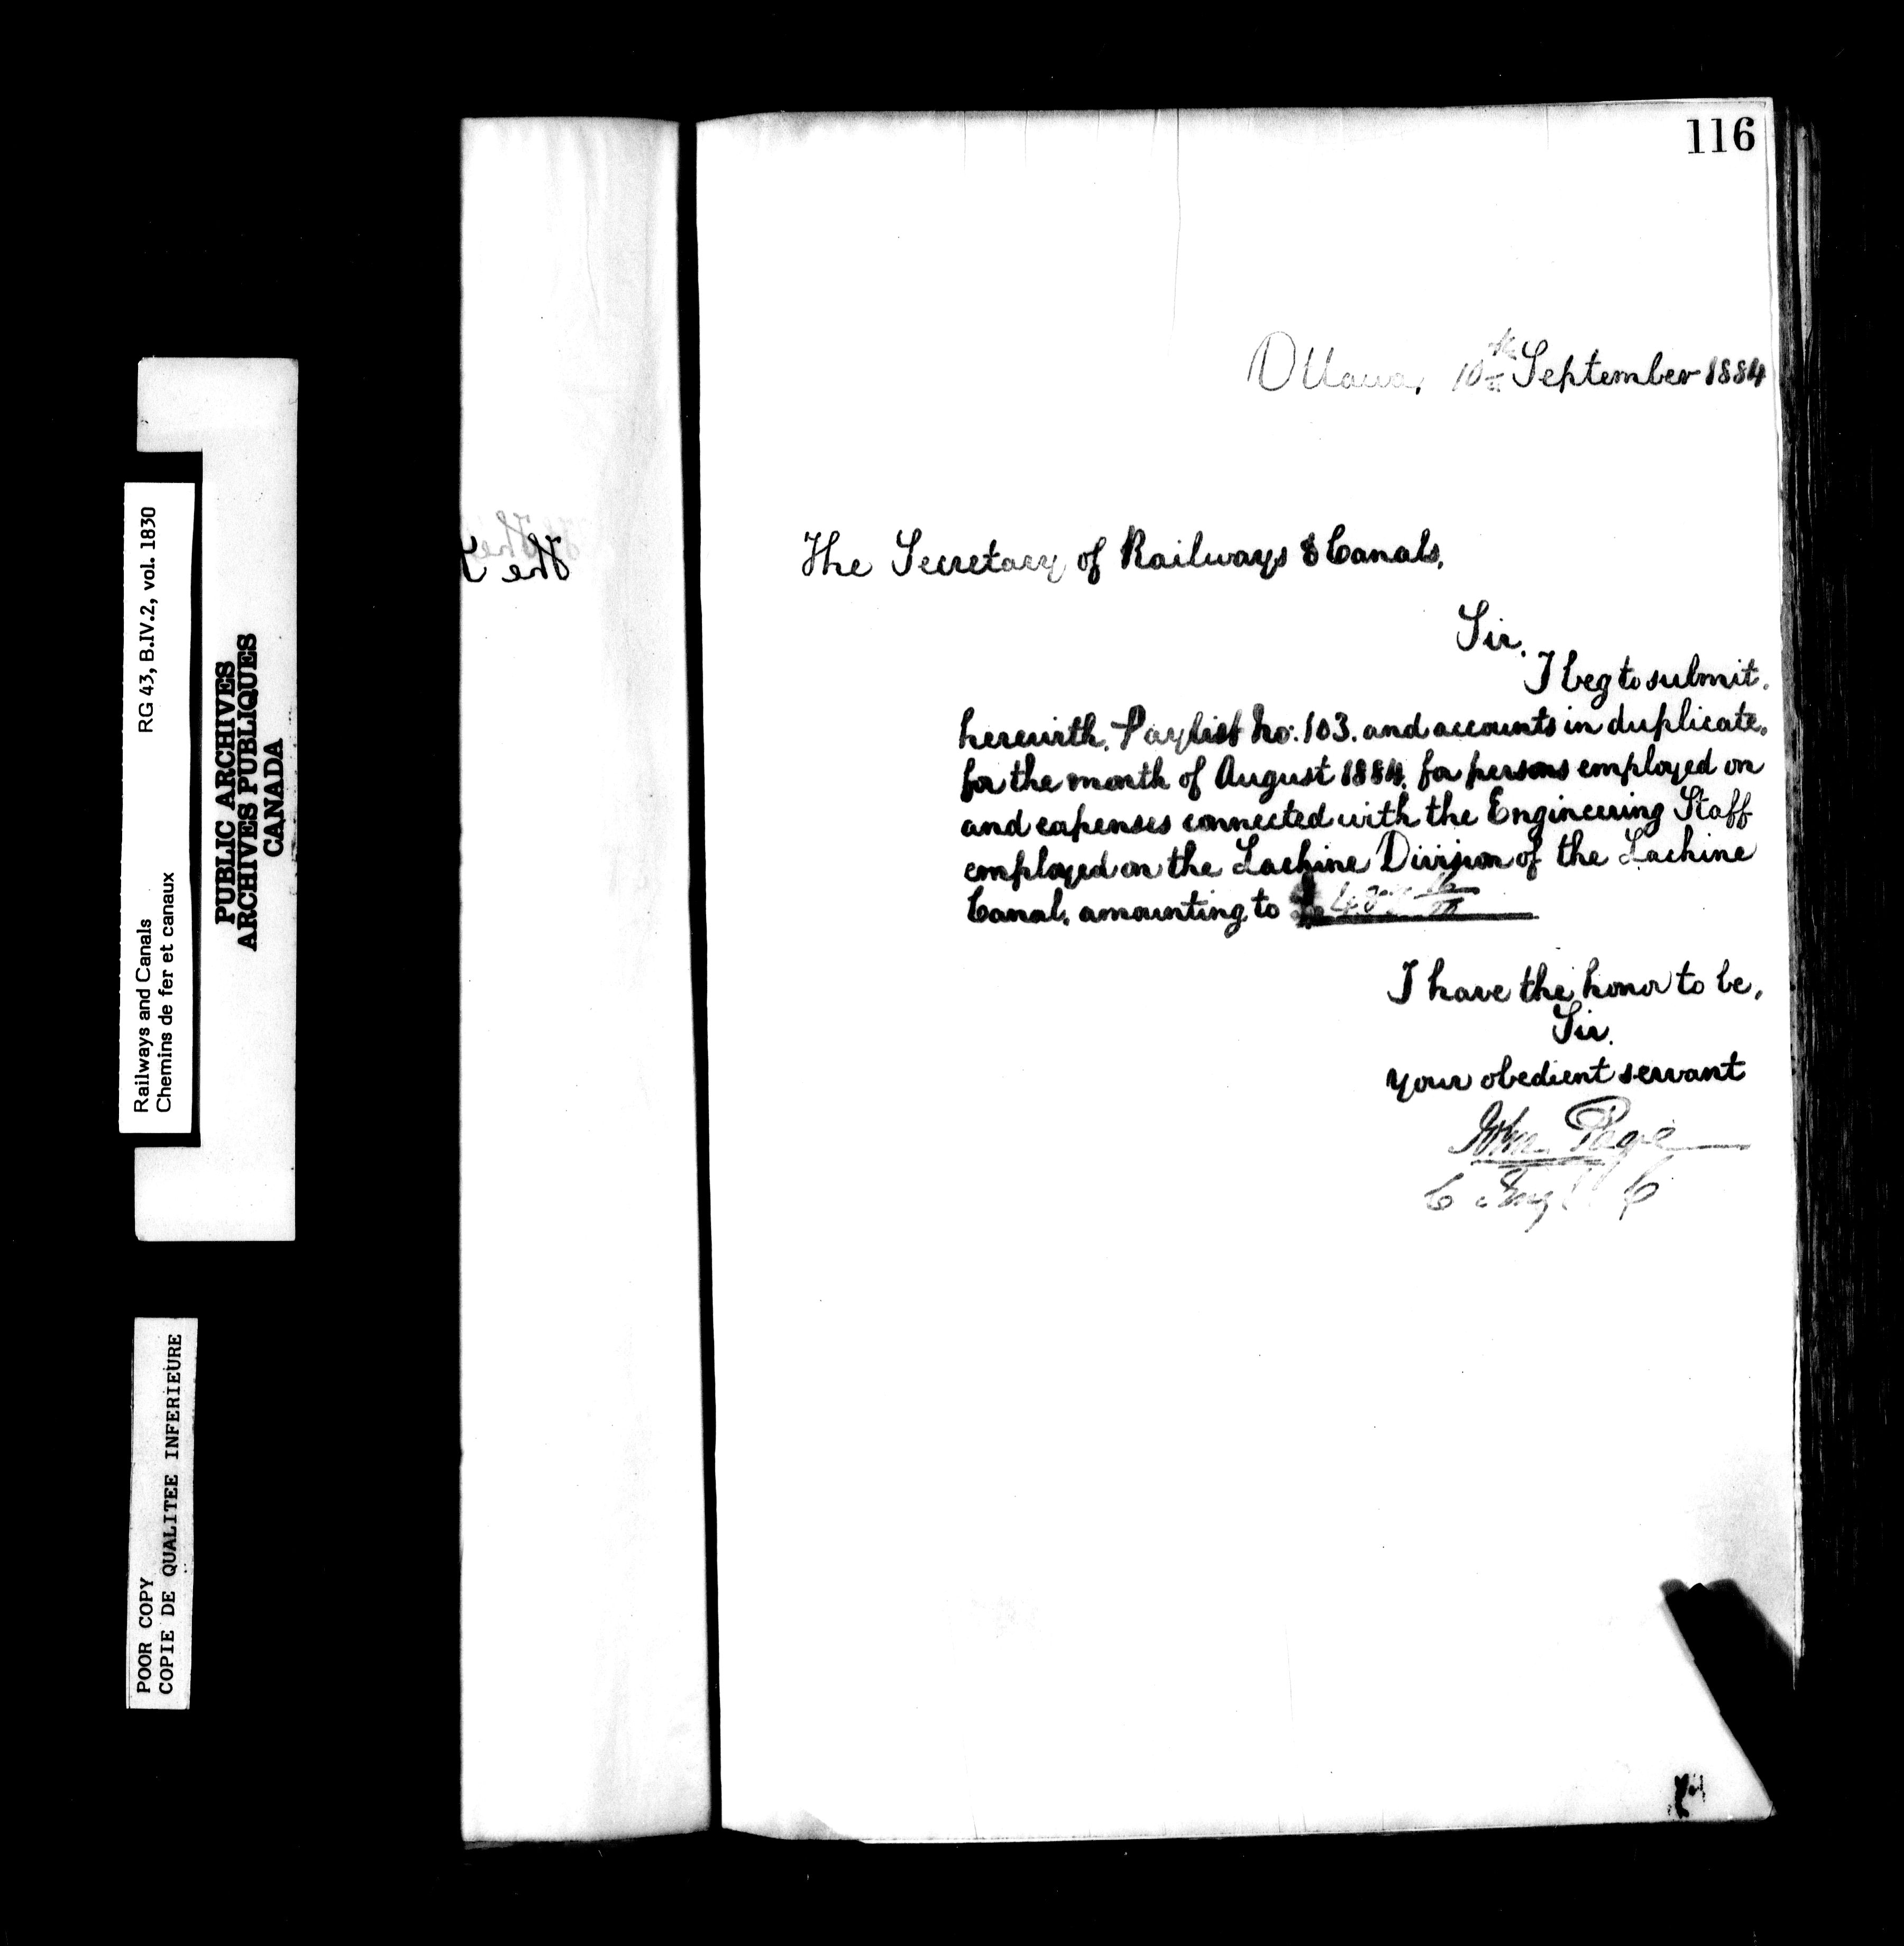 116
Ottawa, 10th September 1884
The Secretary of Railways & Canals.
Sir.
I beg to submit.
herewith. Paylist No: 103. and accounts in duplicate.
for the month of August 1884. for persons employed on
and expenses connected with the Engineering Staff
employed on the Lachine Division of the Lachine
Canal. amounting to $
I have the honor to be,
Sir.
your obedient servant
John Page
C Eng C
The
Railways and Canals RG 43, B.IV.2, vol. 1830
Chemins de fer et canaux
PUBLIC ARCHIVES
ARCHIVES PUBLIQUES
CANADA
POOR COPY
COPIE DE QUALITEE INFERIEURE